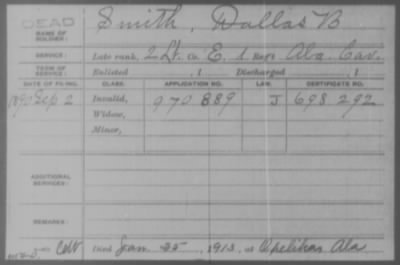 DEAD
NAME OF SOLDIER: Smith, Dallas B
SERVICE: Late rank, 2 Lt. Co. E, 1 Reg't Ala. Cav.
TERM OF SERVICE: Enlisted , 1 Discharged , 1
DATE OF FILING. CLASS. APPLICATION NO. LAW. CERTIFICATE NO.
1890 Sep 2 Invalid, 970 889 J 698 292
Widow,
Minor,
ADDITIONAL SERVICES:
REMARKS:
Died Jan 25, 1913, at Opelika, Ala